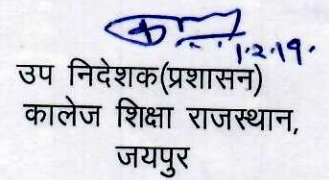 1.2.19.
उप निदेशक(प्रशासन)
कालेज शिक्षा राजस्थान,
जयपुर